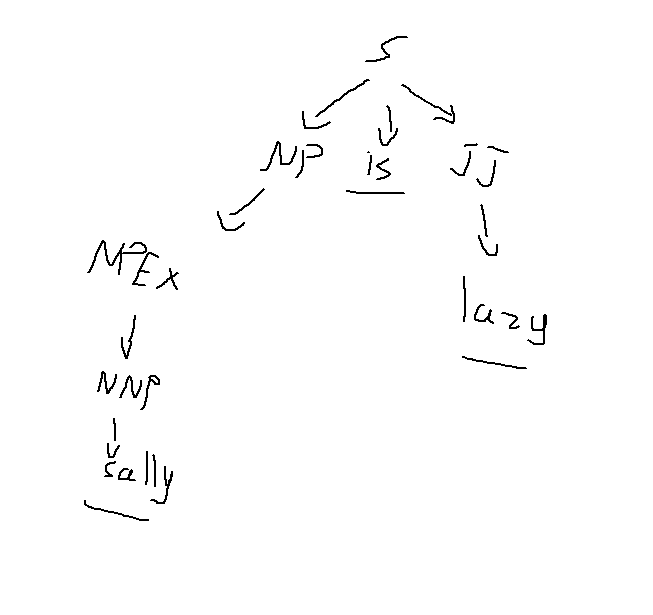 S
NP is JJ
NPEx
lazy
NNP
sally